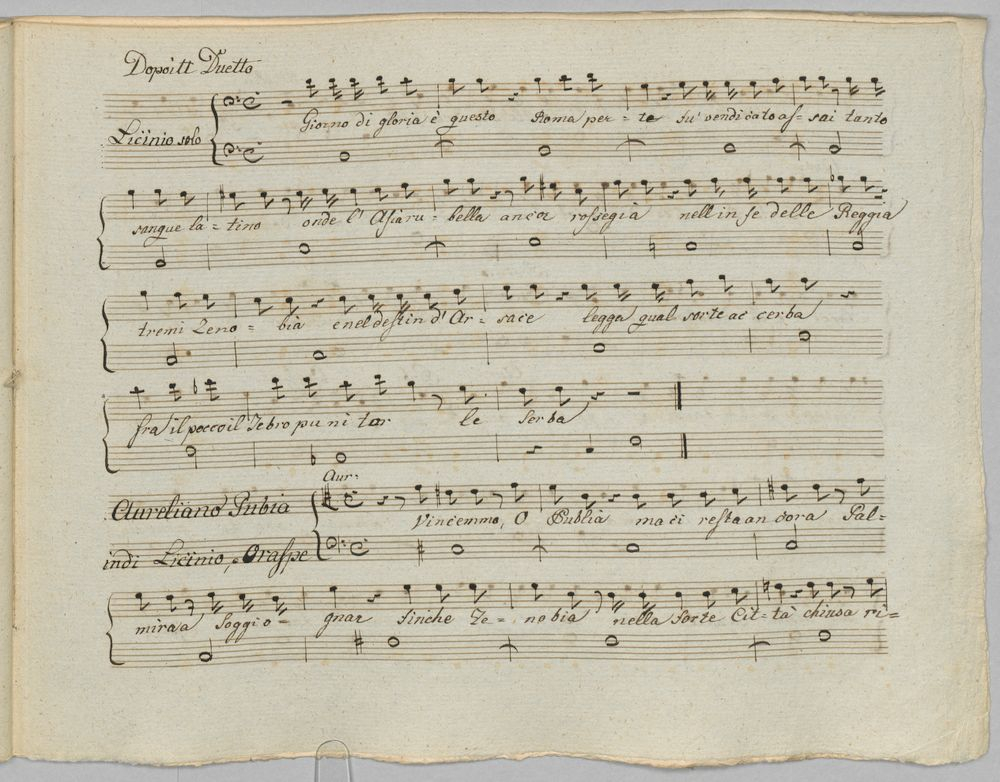 Dopo il Duetto
Licinio solo
Giorno di gloria è questo Roma per-te fu' vendicato as-sai tanto
sangue la-tino onde l'Asia ru-bella ancor rossegia nell in se delle Reggia
tremi Zeno-bia e nel destin d'Ar-sace legga qual sorte ac cerba
fra il pocco il Tebro pu ni tor le serba
Aur:
Aureliano Publia
Vincemmo, O Publia ma ci resta an cora Pal-
indi Licinio, e Oraspe
mira a soggio-gnar finche Ze-nobia nella forte Cit-tà chiusa ri-